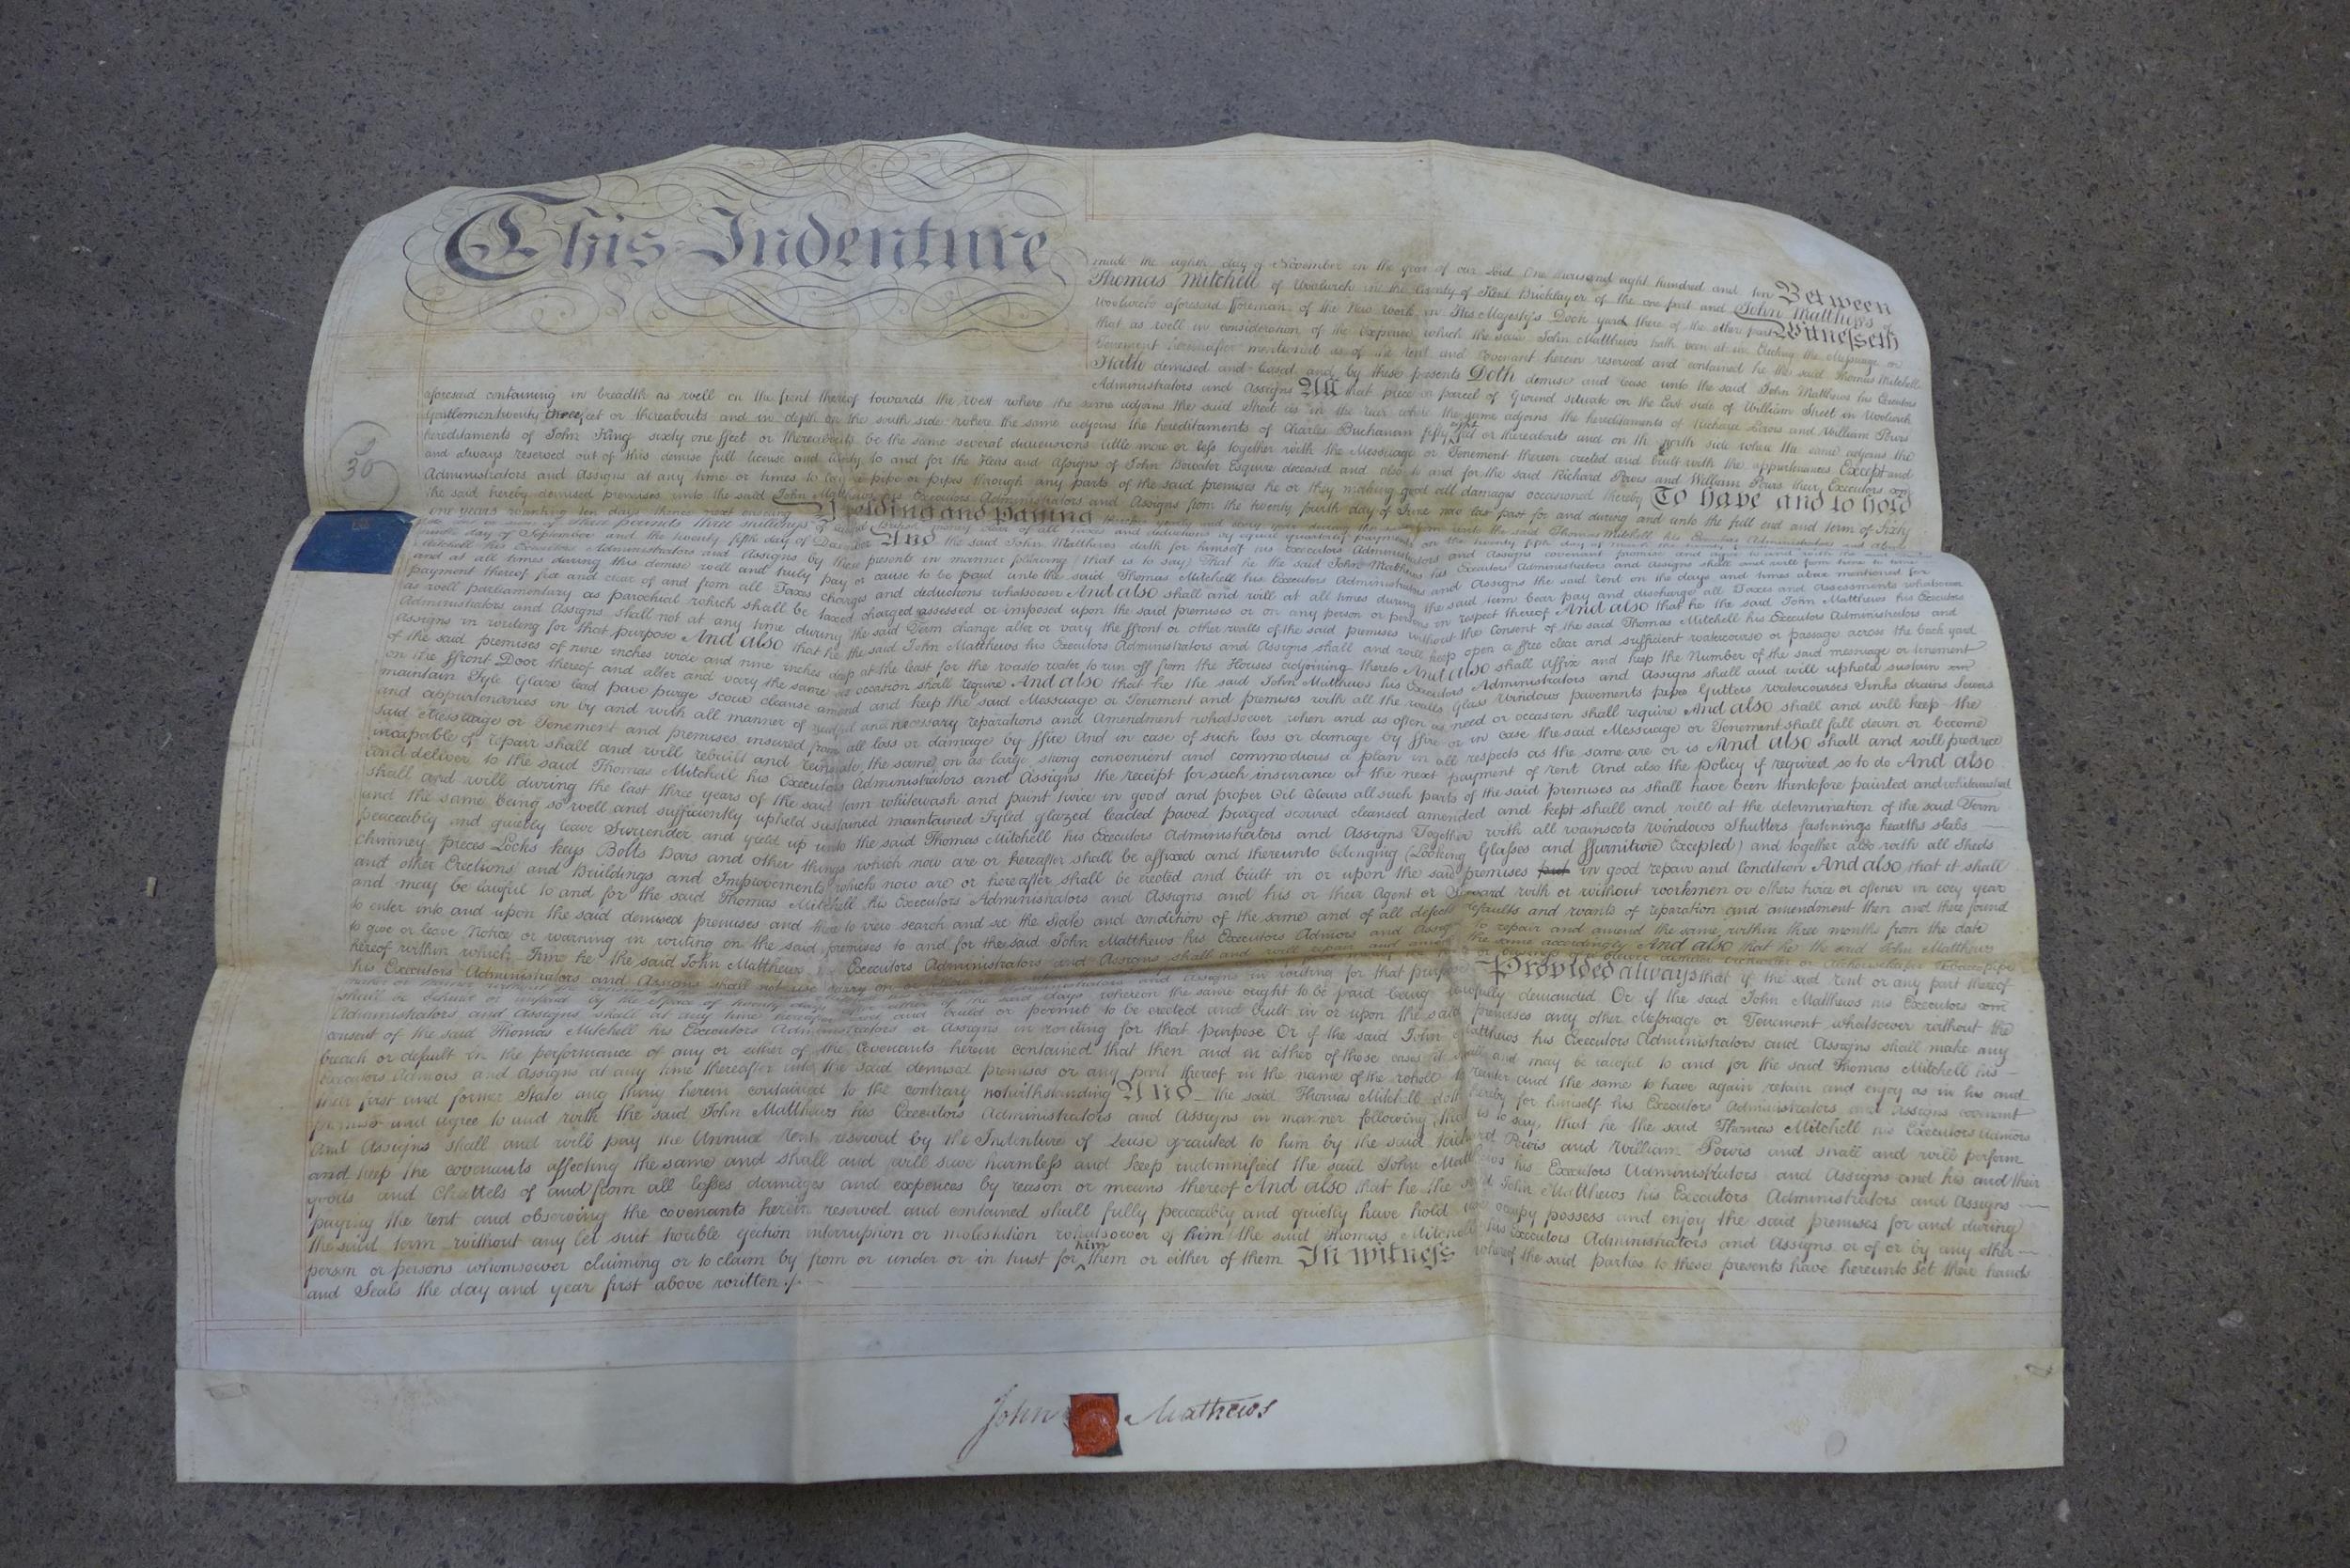 This Indenture
made the eighth day of November in the year of our Lord One thousand eight hundred and ten Between
Thomas Mitchell of Woolwich in the County of Kent Bricklayer of the one part and John Matthews of
Woolwich aforesaid Foreman of the New Work in His Majesty's Dock yard there of the other part Witnesseth
that as well in consideration of the Expence which the said John Matthews hath been at in Erecting the Messuage or
Tenement hereinafter mentioned as of the rent and Covenant herein reserved and contained he the said Thomas Mitchell
Hath demised and leased and by these presents Doth demise and lease unto the said John Matthews his Executors
Administrators and Assigns All that piece or parcel of Ground situate on the East side of William Street in Woolwich
aforesaid containing in breadth as well on the front thereof towards the West where the same adjoins the said Street as in the rear where the same adjoins the hereditaments of Richard Powis and William Powis
Gentlemen twenty three feet or thereabouts and in depth on the south side where the same adjoins the hereditaments of Charles Buchanan fifty eight feet or thereabouts and on the north side where the same adjoins the
hereditaments of John King sixty one ffeet or thereabouts be the same several dimensions little more or less together with the Messuage or Tenement thereon erected and built with the appurtenances Except and
and always reserved out of this demise full license and liberty to and for the Heirs and Assigns of John Bowater Esquire deceased and also to and for the said Richard Powis and William Powis their Executors and
Administrators and Assigns at any time or times to lay a pipe or pipes through any parts of the said premises he or they making good all damages occasioned thereby To have and to hold
the said hereby demised premises unto the said John Matthews his Executors Administrators and Assigns from the twenty fourth day of June now last past for and during and unto the full end and term of Sixty
one years wanting ten days thence next ensuing Yielding and paying
30
three pounds three shillings of
day of September and the twenty fifth day of December And the said John Matthews doth for himself his Executors Administrators and Assigns covenant promise and agree to and with the said
Mitchell his Executors Administrators and Assigns by these presents in manner following (that is to say) That he the said John Matthews his Executors Administrators and Assigns shall and will from time to time
and at all times during this demise well and truly pay or cause to be paid unto the said Thomas Mitchell his Executors Administrators and Assigns the said rent on the days and times above mentioned for
payment thereof free and clear of and from all Taxes charges and deductions whatsoever And also shall and will at all times during the said term bear pay and discharge all Taxes and Assessments whatsoever
as well parliamentary as parochial which shall be taxed charged assessed or imposed upon the said premises or on any person or persons in respect thereof And also that he the said John Matthews his Executors
Administrators and Assigns shall not at any time during the said Term change alter or vary the ffront or other walls of the said premises without the Consent of the said Thomas Mitchell his Executors Administrators and
Assigns in writing for that purpose And also that he the said John Matthews his Executors Administrators and Assigns shall and will keep open a ffree clear and sufficient watercourse or passage across the back yard
of the said premises of nine inches wide and nine inches deep at the least for the waste water to run off from the Houses adjoining thereto And also shall Affix and keep the Number of the said messuage or tenement
on the ffront Door thereof and alter and vary the same as occasion shall require And also that he the said John Matthews his Executors Administrators and Assigns shall and will uphold sustain and
maintain Tyle Glaze lead pave purge scour cleanse amend and keep the said Messuage or Tenement and premises with all the walls Glass Windows pavements pipes Gutters watercourses Sinks drains Sewers
and appurtenances in by and with all manner of needful and necessary reparations and Amendment whatsoever when and as often as need or occasion shall require And also shall and will keep the
said Messuage or Tenement and premises insured from all loss or damage by ffire And in case of such loss or damage by ffire or in case the said Messuage or Tenement shall fall down or become
incapable of repair shall and will rebuild and reinstate the same on as large strong convenient and commodious a plan in all respects as the same are or is And also shall and will produce
and deliver to the said Thomas Mitchell his Executors Administrators and Assigns the receipt for such insurance at the next payment of rent And also the policy if required so to do And also
shall and will during the last three years of the said term whitewash and paint twice in good and proper Oil Colours all such parts of the said premises as shall have been theretofore painted and whitewashed
and the same being so well and sufficiently upheld sustained maintained Tyled glazed leaded paved purged scoured cleansed amended and kept shall and will at the determination of the said Term
peaceably and quietly leave Surrender and yield up unto the said Thomas Mitchell his Executors Administrators and Assigns Together with all wainscots windows Shutters fastenings hearths slabs
chimney pieces Locks keys Bolts Bars and other things which now are or hereafter shall be affixed and thereunto belonging (Looking Glasses and ffurniture Excepted) and together also with all Sheds
and other Erections and Buildings and Improvements which now are or hereafter shall be erected and built in or upon the said premises in good repair and Condition And also that it shall
and may be lawful to and for the said Thomas Mitchell his Executors Administrators and Assigns and his or their Agent or Steward with or without workmen or others twice or oftener in every year
to enter into and upon the said demised premises and there to view search and see the State and condition of the same and of all defects defaults and wants of reparation and amendment then and there found
to give or leave Notice or warning in writing on the said premises to and for the said John Matthews his Executors Admors and Assigns to repair and amend the same within three months from the date
hereof within which Time he the said John Matthews his Executors Administrators and Assigns shall and will repair and amend the same accordingly And also that he the said John Matthews
his Executors Administrators and Assigns shall not use carry on or
Administrators and Assigns in writing for that purpose Provided always that if the said rent or any part thereof
shall be behind or unpaid by the space of twenty days after either of the said days wherein the same ought to be paid being lawfully demanded Or if the said John Matthews his Executors and
Administrators and Assigns shall at any time hereafter erect and build or permit to be erected and built in or upon the said premises any other Messuage or Tenement whatsoever without the
consent of the said Thomas Mitchell his Executors Administrators or Assigns in writing for that purpose Or if the said John Matthews his Executors Administrators and Assigns shall make any
breach or default in the performance of any or either of the Covenants herein contained that then and in either of those cases it shall and may be lawful to and for the said Thomas Mitchell his
Executors Admors and Assigns at any time thereafter into the said demised premises or any part thereof in the name of the whole to reenter and the same to have again retain and enjoy as in his and
their first and former State any thing herein contained to the contrary notwithstanding And the said Thomas Mitchell doth hereby for himself his Executors Administrators and Assigns covenant
promise and agree to and with the said John Matthews his Executors Administrators and Assigns in manner following that is to say, that he the said Thomas Mitchell his Executors Admors
and Assigns shall and will pay the Annual rent reserved by the Indenture of Lease granted to him by the said Richard Powis and William Powis and shall and will perform
and keep the covenants affecting the same and shall and will save harmless and keep indemnified the said John Matthews his Executors Administrators and Assigns and his and their
goods and Chattels of and from all losses damages and expences by reason or means thereof And also that he the said John Matthews his Executors Administrators and Assigns
paying the rent and observing the covenants herein reserved and contained shall fully peaceably and quietly have hold use occupy possess and enjoy the said premises for and during
the said term without any let suit trouble ejection interruption or molestation whatsoever of him the said Thomas Mitchell his Executors Administrators and Assigns or of or by any other
person or persons whomsoever claiming or to claim by from or under or in trust for him them or either of them In witness whereof the said parties to these presents have hereunto set their hands
and Seals the day and year first above written
John Mathews